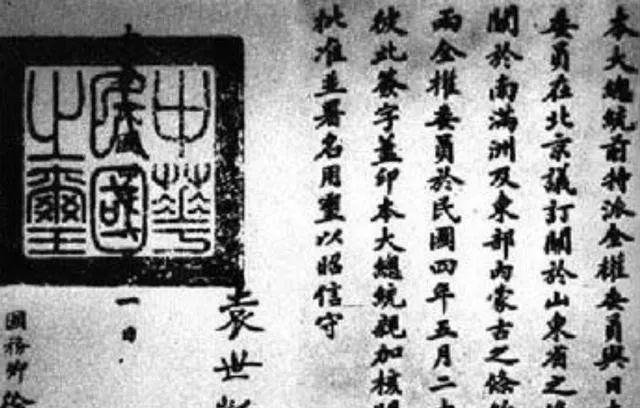 本大總統前特派全權委員與日
委員在北京議訂關於山東省之
關於南滿洲及東部內蒙古之條
兩全權委員於民國四年五月二
彼此簽字蓋印本大總統親加核
批准並署名用璽以昭信守
袁世
中華民國之璽
一日
國務卿徐